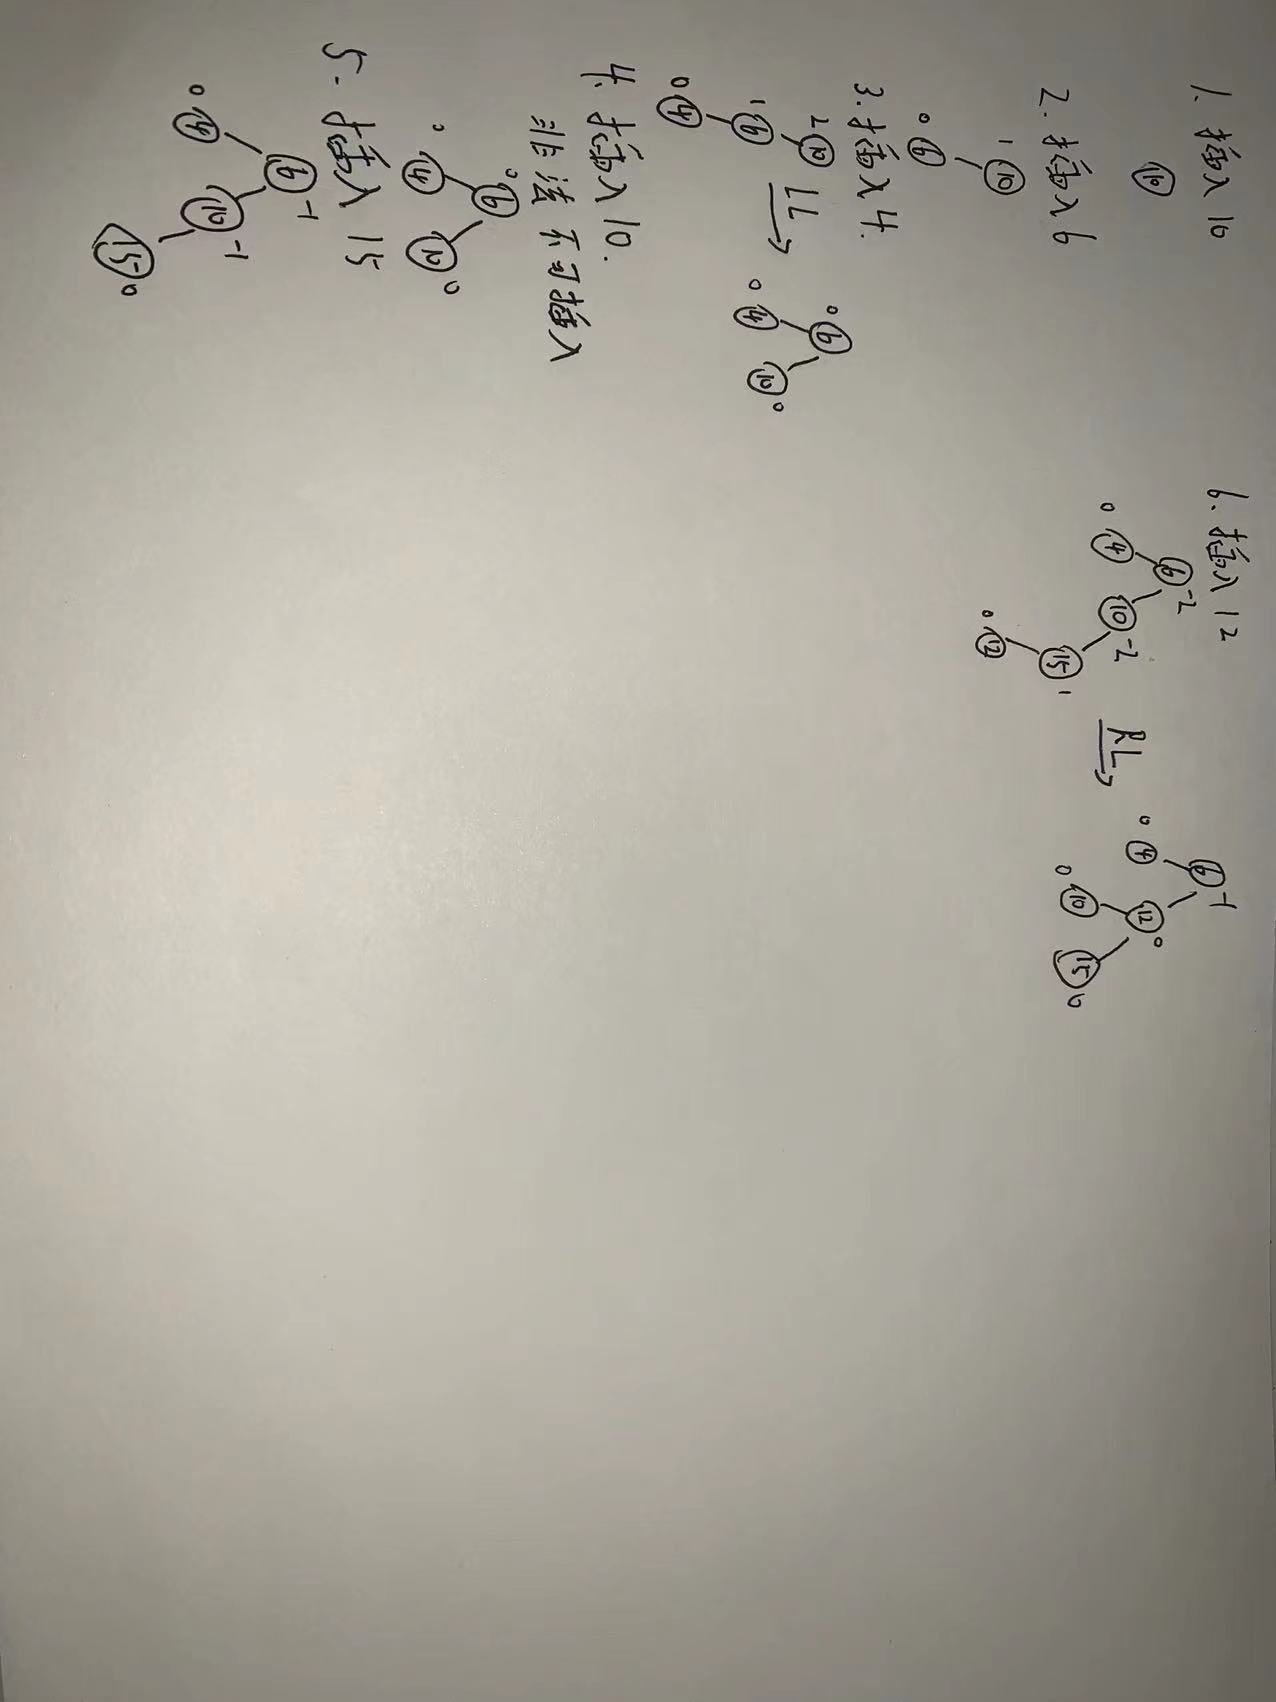 1. 插入 10
10
2. 插入 6
1 10
0 6
3. 插入 4.
2 10
1 6
0 4
LL
0 6
0 4
10 0
4. 插入 10.
非法 不可插入
0 6
0 4
10 0
5. 插入 15
6 -1
0 4
10 -1
15 0
6. 插入 12
6 -2
0 4
10 -2
15 1
0 12
RL
6 -1
0 4
12 0
0 10
15 0